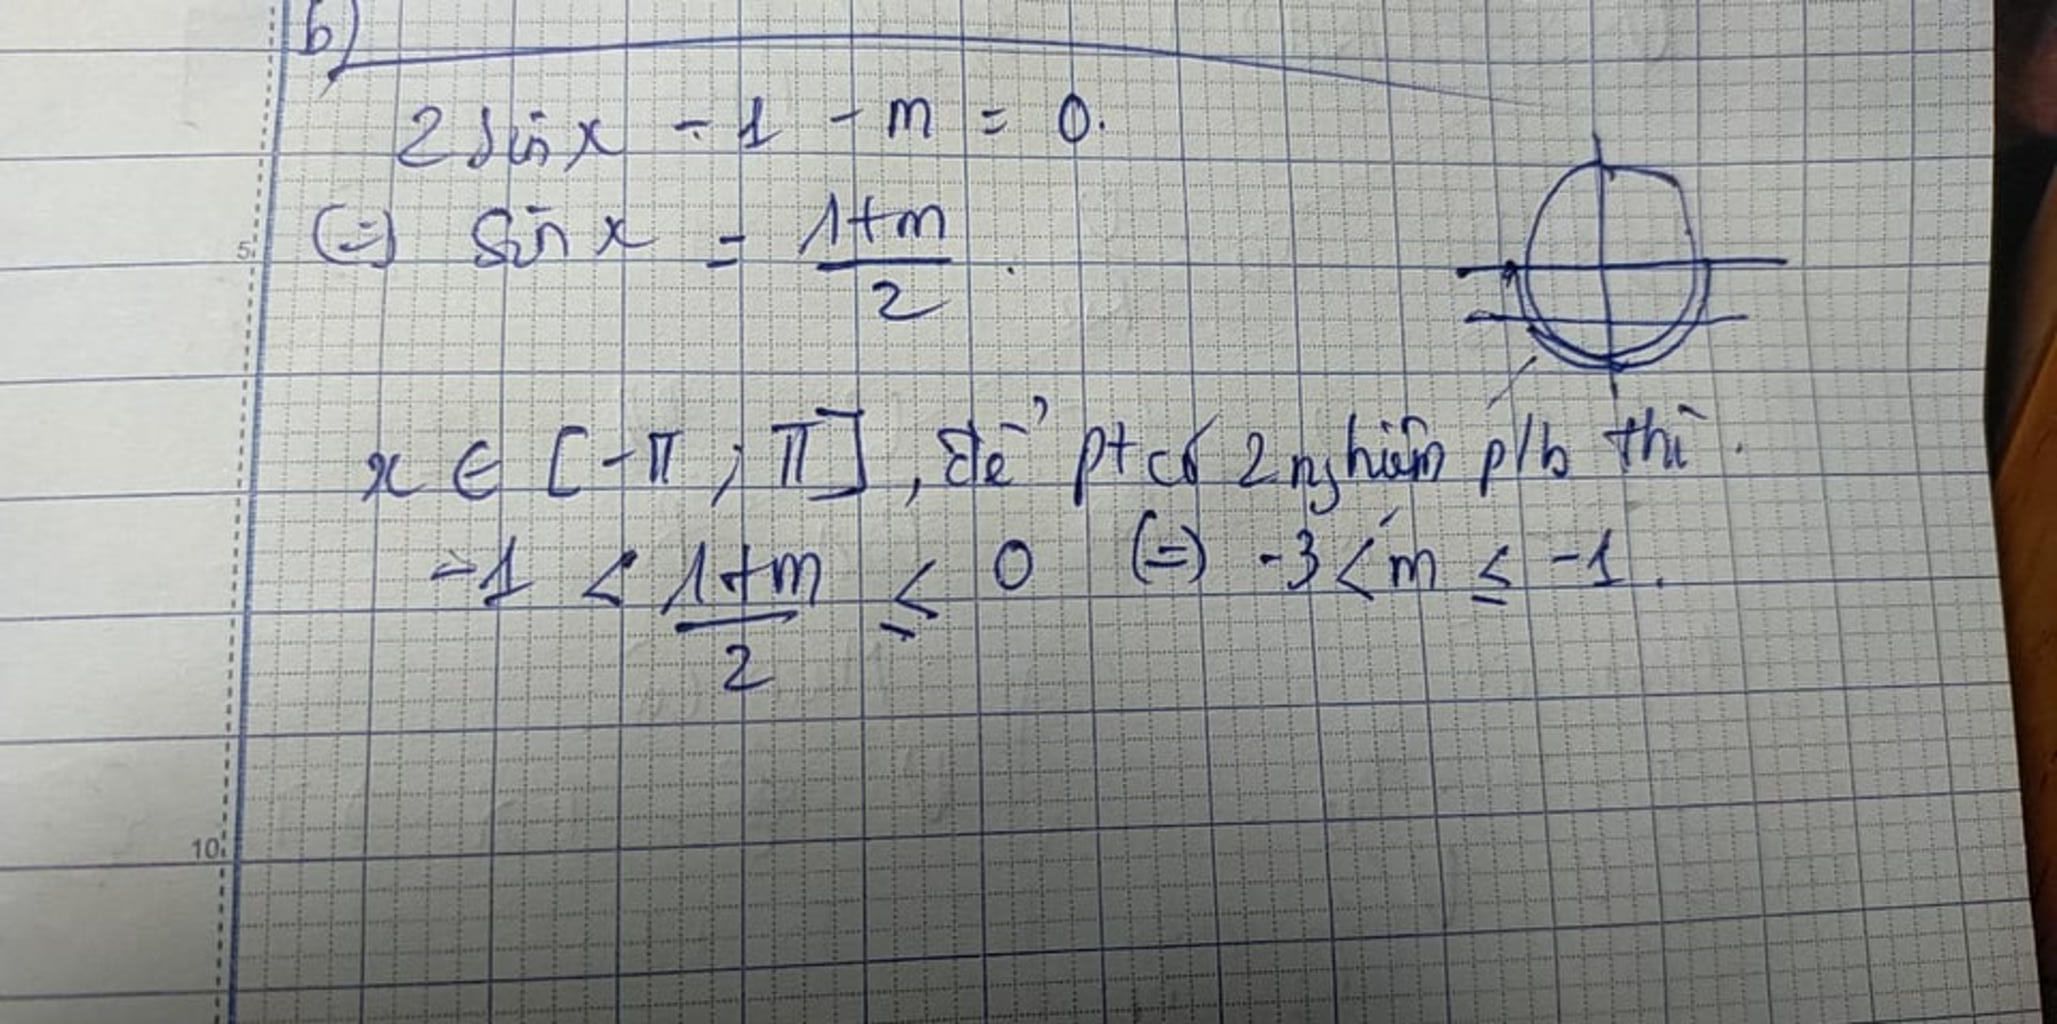 b)
2 sin x - 1 - m = 0.
(=) sin x = \frac{1+m}{2}.
5
x ∈ [-π ; π], để pt có 2 nghiệm p/b thì.
-1 < \frac{1+m}{2} ≤ 0 (=) -3 < m ≤ -1.
10